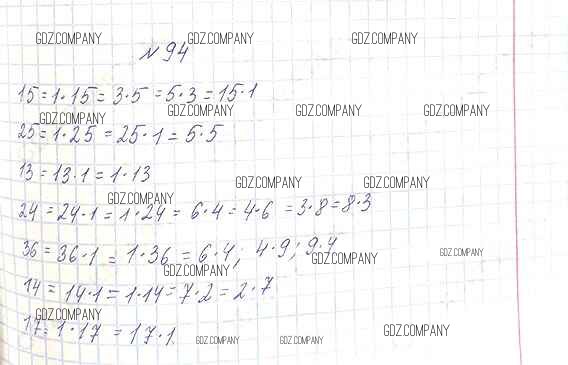 GDZ.COMPANY GDZ.COMPANY GDZ.COMPANY
№ 94
15 = 1·15 = 3·5 = 5·3 = 15·1
GDZ.COMPANY GDZ.COMPANY GDZ.COMPANY GDZ.COMPANY
25 = 1·25 = 25·1 = 5·5
13 = 13·1 = 1·13
GDZ.COMPANY GDZ.COMPANY GDZ.COMPANY
24 = 24·1 = 1·24 = 6·4 = 4·6 = 3·8 = 8·3
36 = 36·1 = 1·36 = 6·4; 4·9; 9·4
GDZ.COMPANY GDZ.COMPANY GDZ.COMPANY
14 = 14·1 = 1·14 = 7·2 = 2·7
GDZ.COMPANY
17 = 1·17 = 17·1
GDZ.COMPANY GDZ.COMPANY GDZ.COMPANY